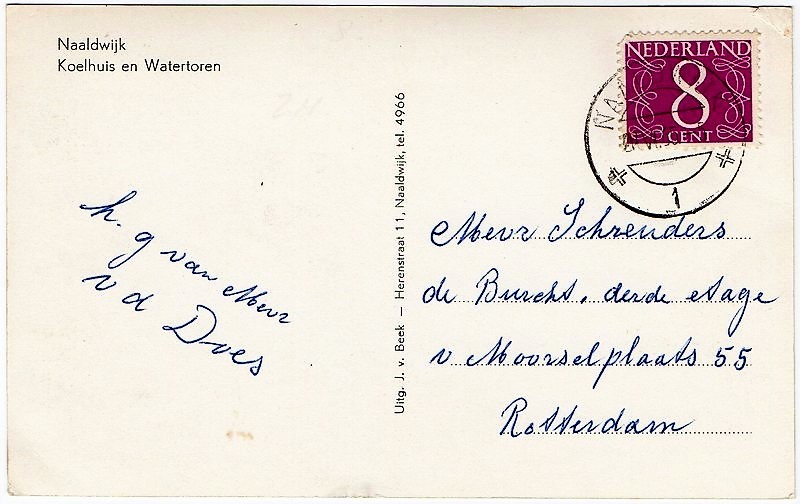 Naaldwijk
Koelhuis en Watertoren
h. g van Mevr
v d Does
Uitg. J. v. Beek — Herenstraat 11, Naaldwijk, tel. 4966
NEDERLAND
8
CENT
1
Mevr Schreuders
de Burcht, derde etage
v Moorselplaats 55
Rotterdam